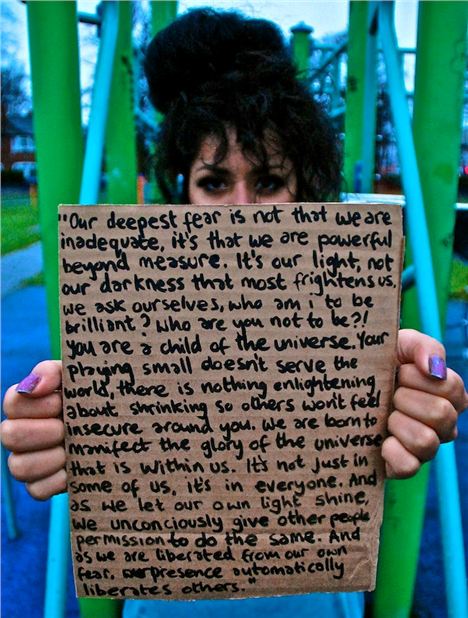 "Our deepest fear is not that we are
inadequate, it's that we are powerful
beyond measure. It's our light, not
our darkness that most frightens us.
we ask ourselves, who am i to be
brilliant? Who are you not to be?!
You are a child of the universe. Your
playing small doesn't serve the
world, there is nothing enlightening
about shrinking so others won't feel
insecure around you. We are born to
manifect the glory of the universe
that is within us. It's not just in
some of us, it's in everyone. And
as we let our own light shine,
we unconciously give other people
permission to do the same. And
as we are liberated from our own
fear, our presence automatically
liberates others."